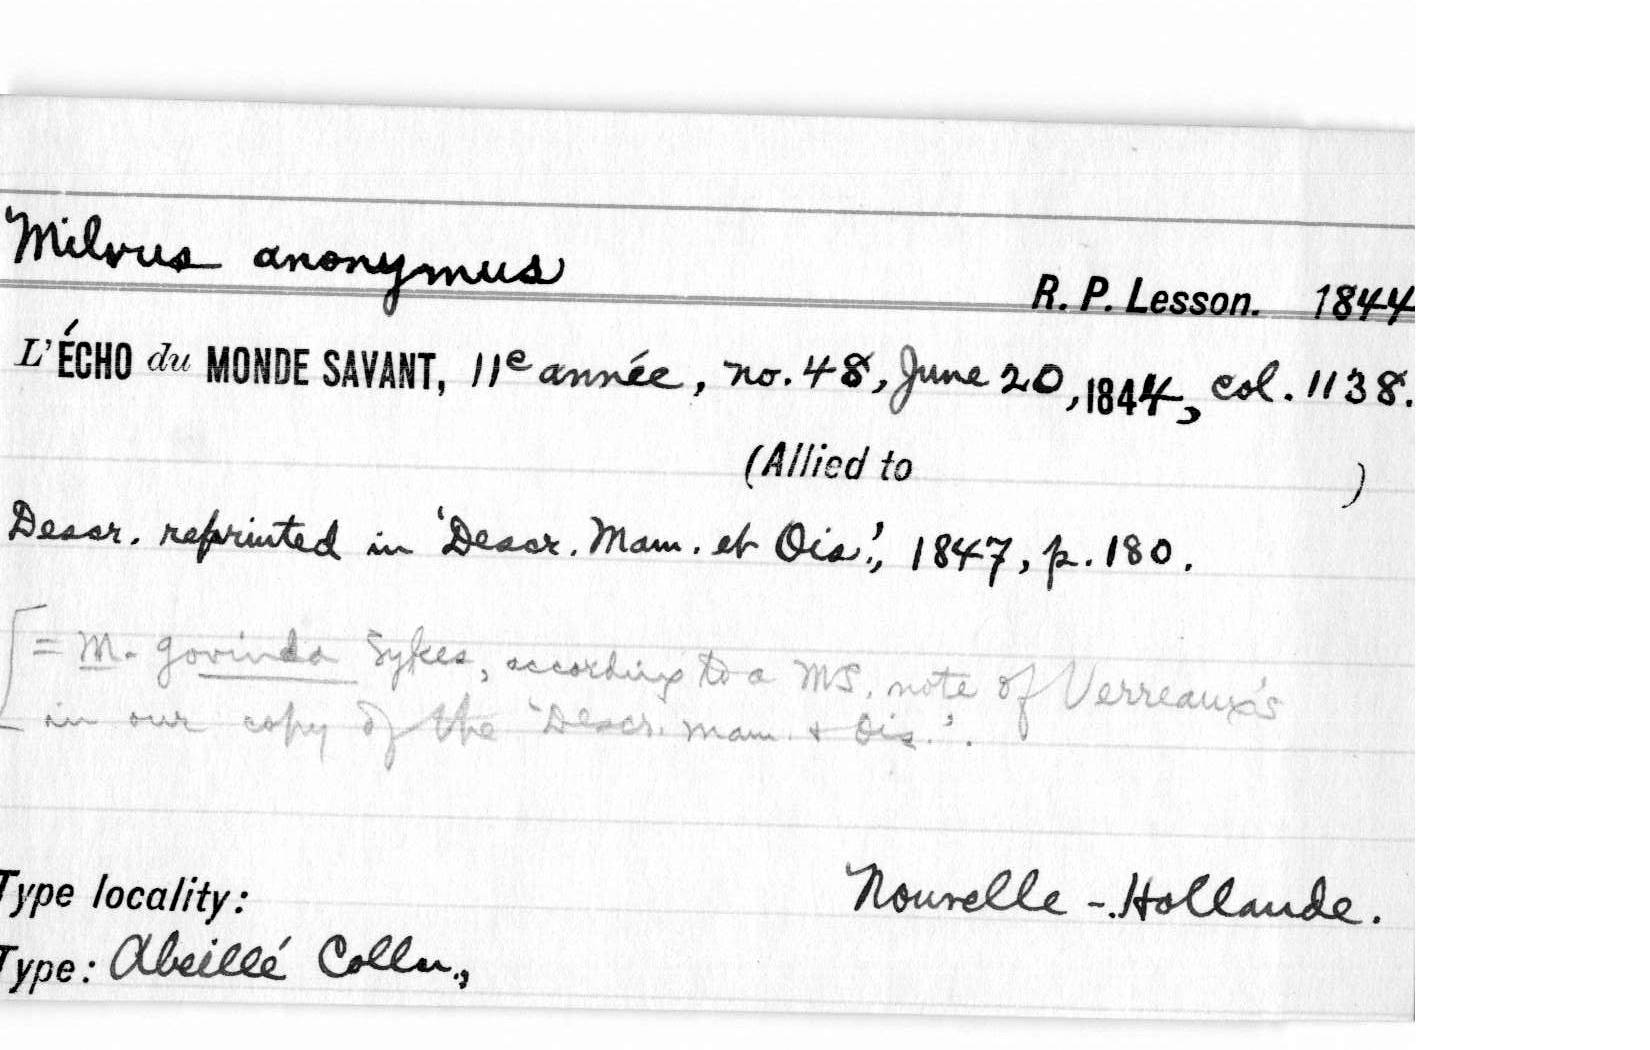 Milvus anonymus
R. P. Lesson. 1844
L'ÉCHO du MONDE SAVANT, 11e année, no. 48, June 20, 1844, col. 1138.
(Allied to )
Descr. reprinted in 'Descr. Mam. et Ois.', 1847, p. 180.
[= M. govinda Sykes, according to a MS. note of Verreaux's
in our copy of the 'Descr. Mam. & Ois.'.
Type locality: Nouvelle-Hollande.
Type: Abeillé Colln.,